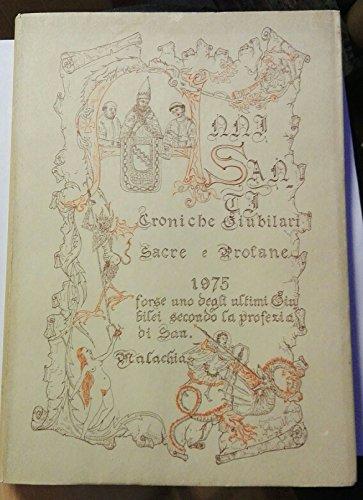 ANNI
SAN-
TI
Croniche Giubilari
Sacre e Profane
1975
forse uno degli ultimi Giu
bilei secondo la profezia
di San.
Malachia